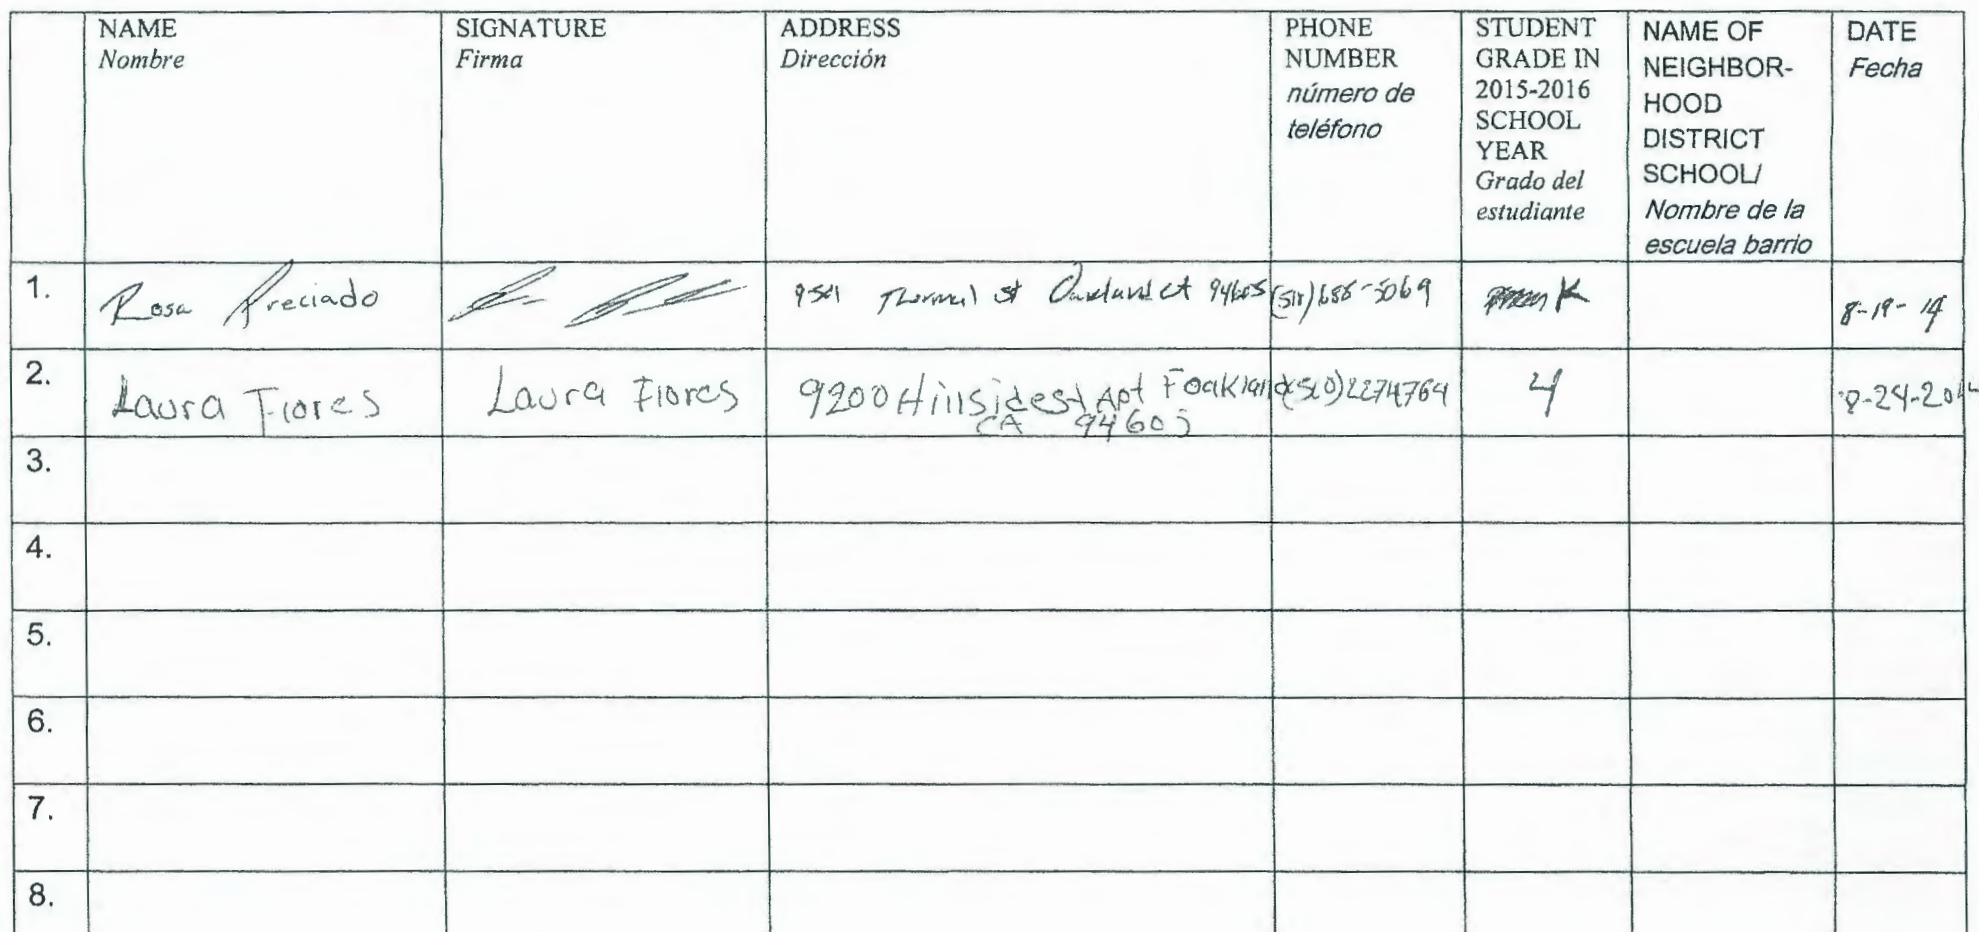 NAME
Nombre
SIGNATURE
Firma
ADDRESS
Dirección
PHONE
NUMBER
número de
teléfono
STUDENT
GRADE IN
2015-2016
SCHOOL
YEAR
Grado del
estudiante
NAME OF
NEIGHBOR-
HOOD
DISTRICT
SCHOOL/
Nombre de la
escuela barrio
DATE
Fecha
1. Rosa Preciado Thermal st Oakland CA 94605 K 8-19-14
2. Laura Flores Laura Flores 9200 Hillside st Apt F oakland (510)2274764 4 8-24-2014
CA 94605
3.
4.
5.
6.
7.
8.